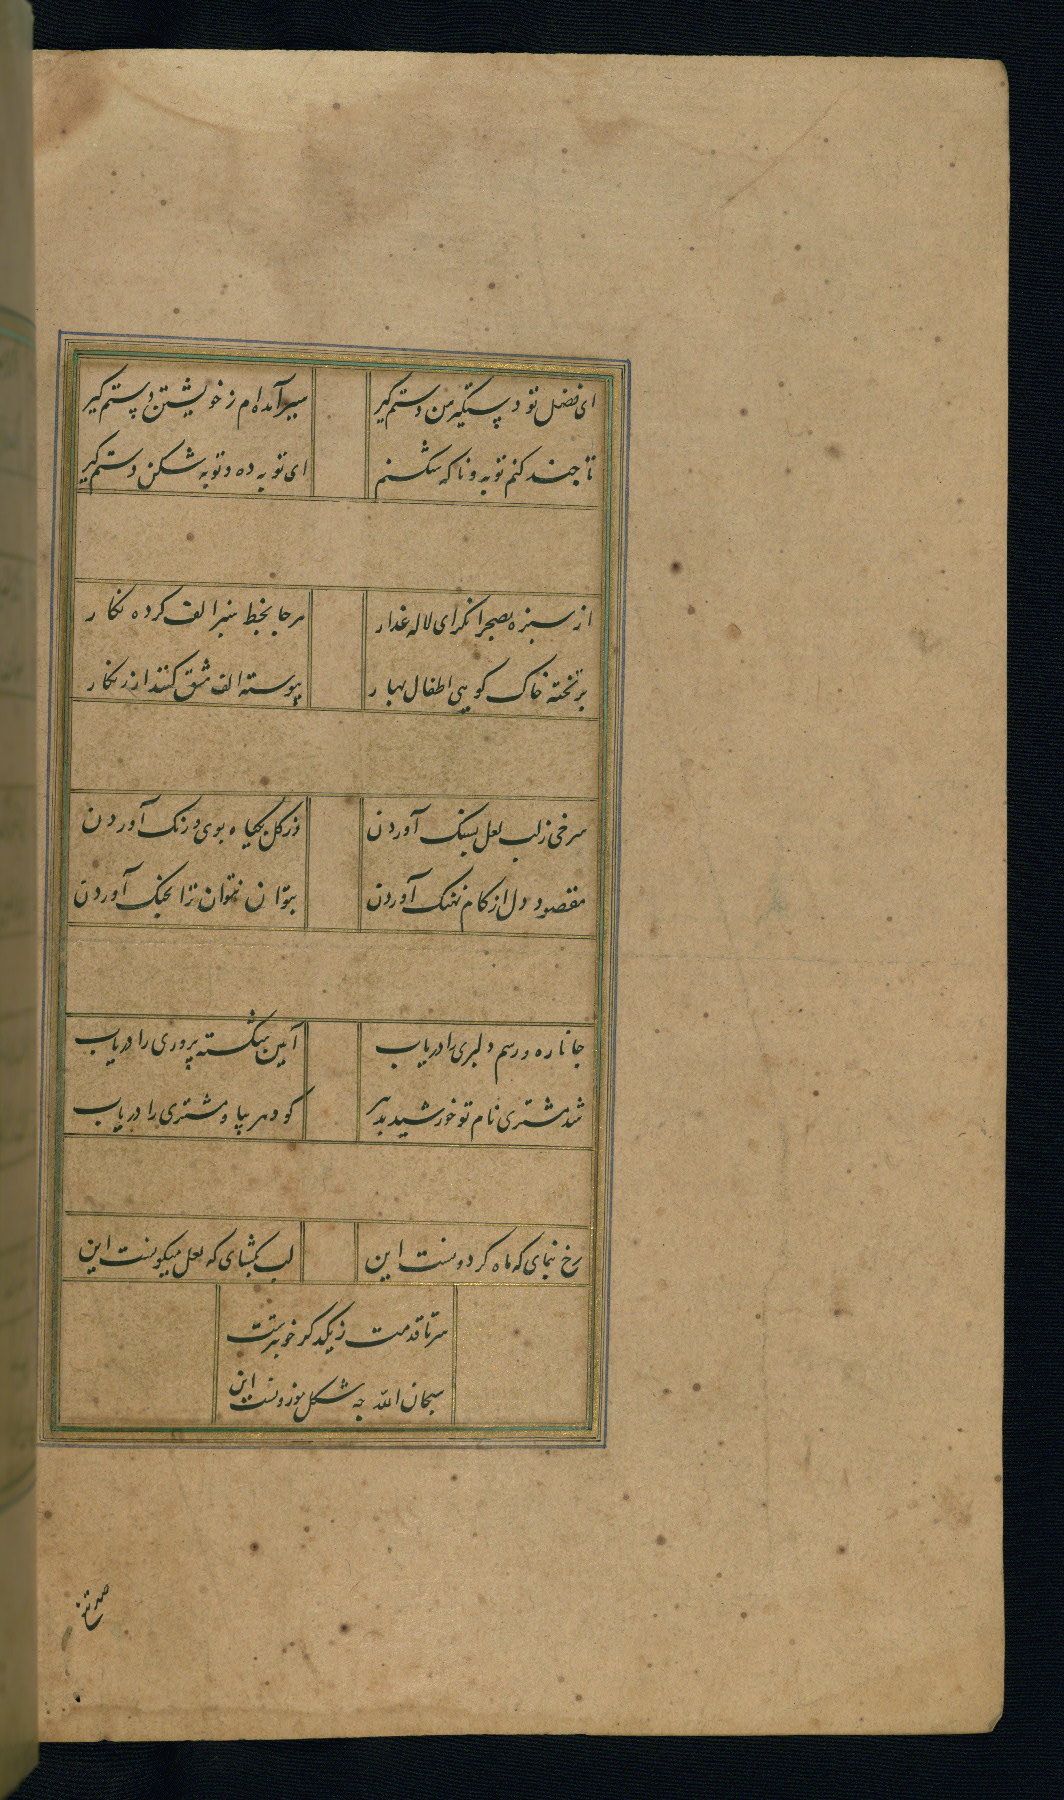 ای فضل تو دستگیر من دستم گیر
سیر آمده‌ام ز خویشتن دستم گیر
تا چند کنم توبه و تا کی شکنم
ای توبه ده و توبه شکن دستم گیر
از سبزه بصحرا نگر ای لاله عذار
هر جا بخط سبز الف کرده نگار
بر تخته خاک گویی اطفال بهار
پیوسته الف مشق کنند از زنگار
سرخی ز لب لعل بسنگ آوردن
در کل بگیاه بوی و رنگ آوردن
مقصود دل از کام نهنگ آوردن
بتوان نتوان ترا بچنگ آوردن
جانا ره و رسم دلبری را دریاب
آیین شکسته پروری را دریاب
شد مشتری نام تو خورشید بمهر
کو دهر بیا و مشتری را دریاب
رخ بنمای که ماه گردونست این
لب بگشای که لعل میگونست این
سر تا قدمت ز یکدگر خوبترست
سبحان الله چه شکل موزونست این